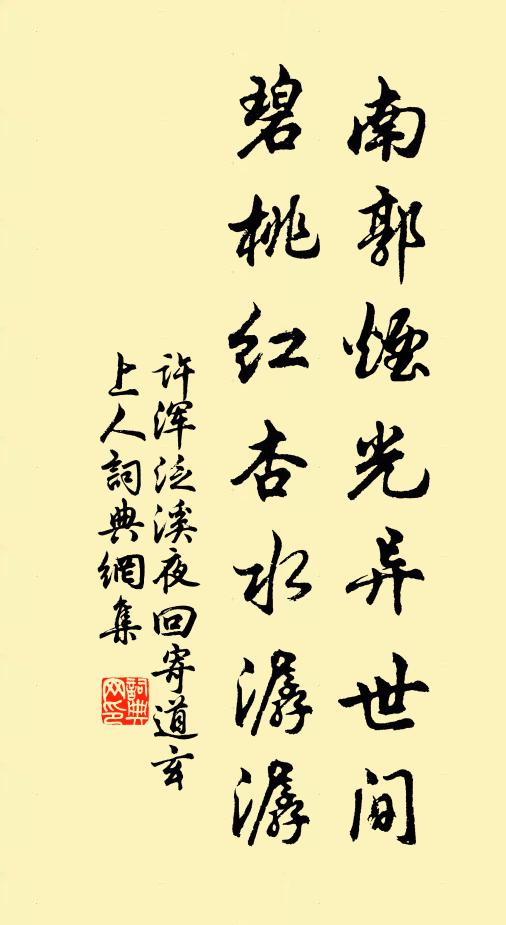 南郭煙光异世间
碧桃红杏水潺潺
许浑泛溪夜回寄道玄
上人詞典網集
詞典
网印